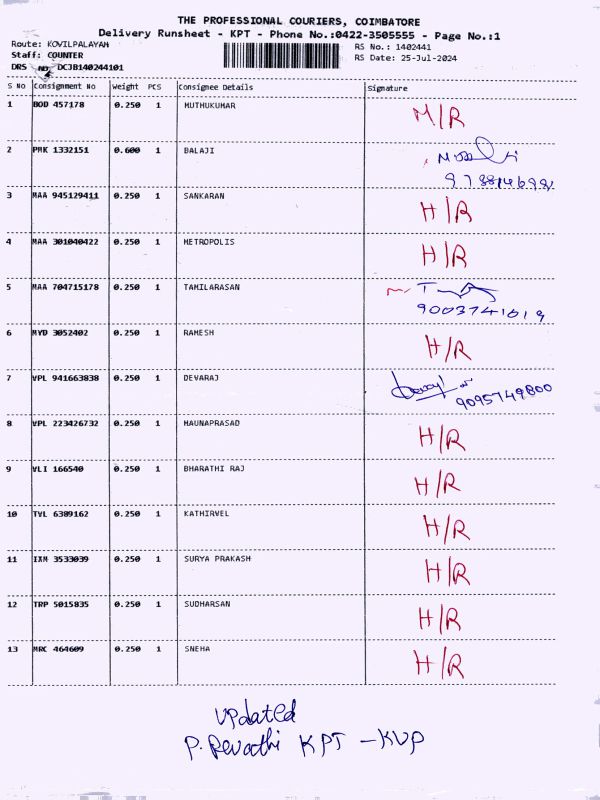 THE PROFESSIONAL COURIERS, COIMBATORE
Delivery Runsheet - KPT - Phone No.:0422-3505555 - Page No.:1
Route: KOVILPALAYAM RS No.: 1402441
Staff: COUNTER RS Date: 25-Jul-2024
DRS No: DCJB140244101
S No Consignment No Weight PCS Consignee Details Signature
1 BOD 457178 0.250 1 MUTHUKUMAR M/R
2 PMK 1332151 0.600 1 BALAJI
3 MAA 945129411 0.250 1 SANKARAN H/R
4 MAA 301040422 0.250 1 METROPOLIS H/R
5 MAA 704715178 0.250 1 TAMILARASAN
9003741019
6 MYD 3052402 0.250 1 RAMESH H/R
7 VPL 941663838 0.250 1 DEVARAJ
9095749800
8 VPL 223426732 0.250 1 HAUNAPRASAD H/R
9 VLI 166540 0.250 1 BHARATHI RAJ H/R
10 TVL 6389162 0.250 1 KATHIRVEL H/R
11 IXM 3533039 0.250 1 SURYA PRAKASH H/R
12 TRP 5015835 0.250 1 SUDHARSAN H/R
13 MRC 464609 0.250 1 SNEHA H/R
Updated
P. Revathi KPT - KVP